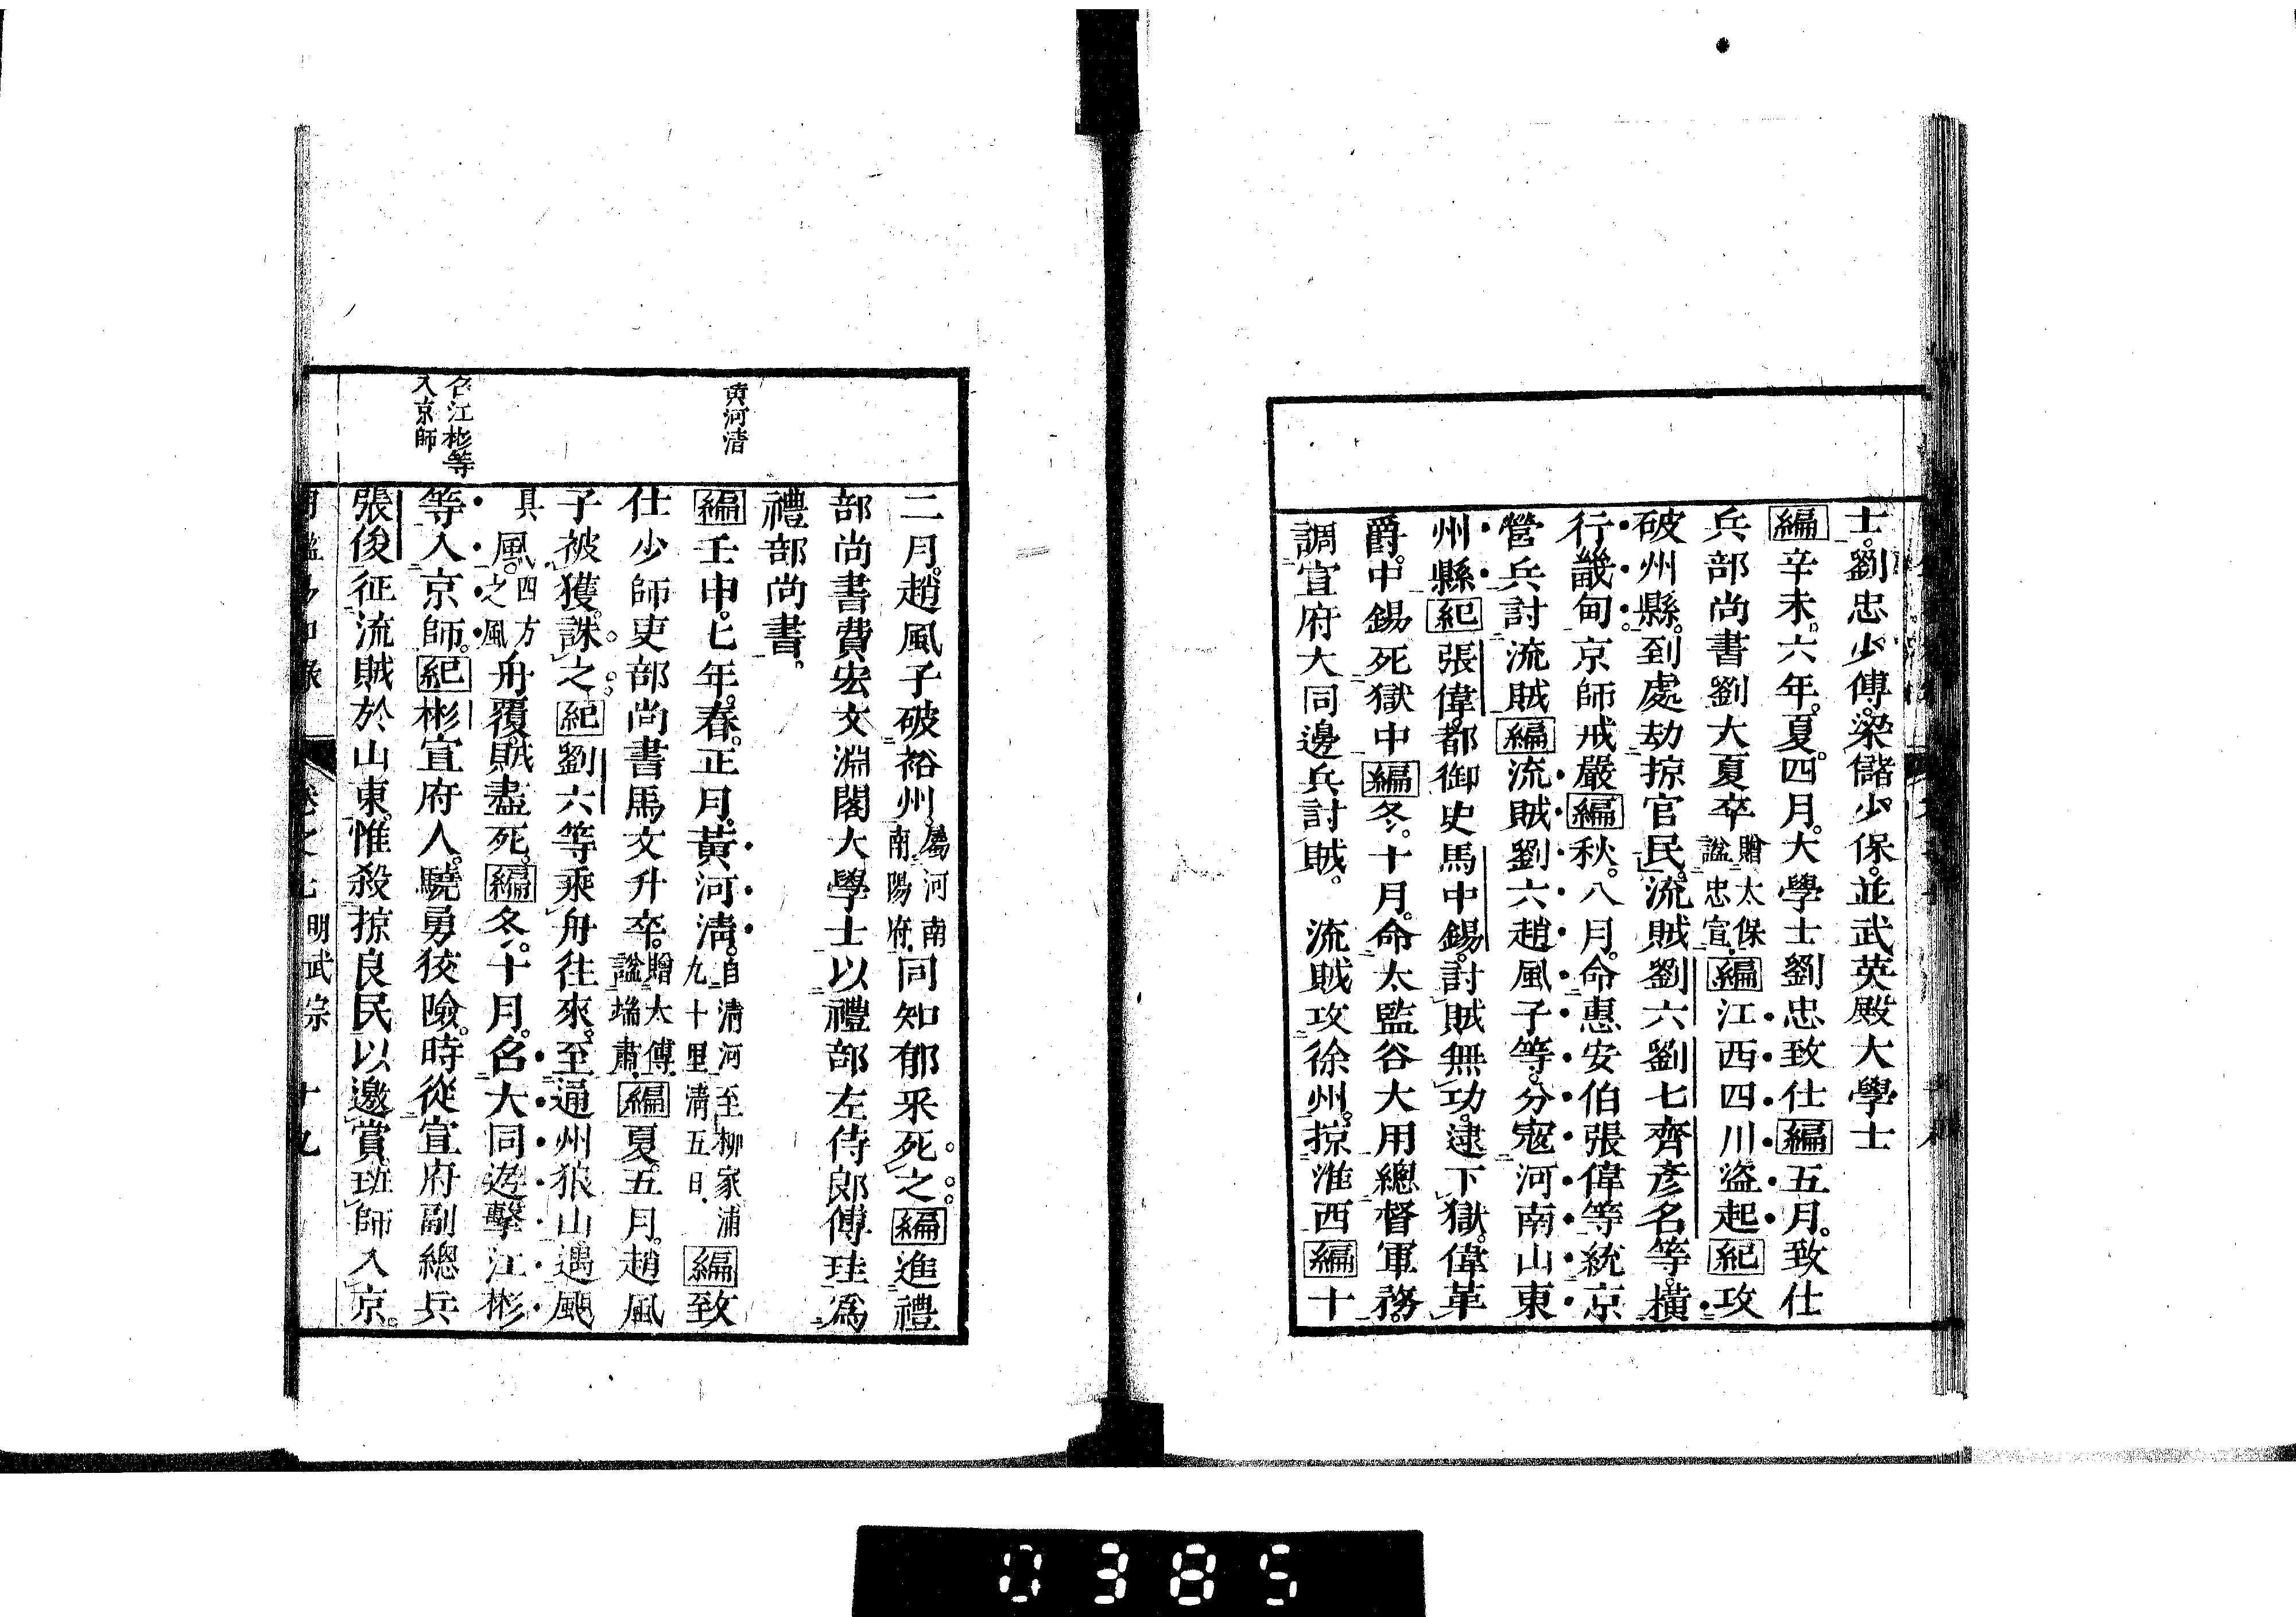 士。劉忠少傅。梁儲少保。並武英殿大學士
編辛未。六年。夏。四月。大學士劉忠致仕編五月。致仕
兵部尚書劉大夏卒贈太保諡忠宣。編江西四川盗起紀攻
破州縣。到處劫掠官民。流賊劉六劉七齊彥名等。橫
行畿甸。京師戒嚴編秋。八月。命惠安伯張偉等統京
營兵討流賊編流賊劉六趙風子等。分寇河南山東
州縣紀張偉。都御史馬中錫。討賊無功。逮下獄。偉革
爵。中錫死獄中編冬。十月。命太監谷大用總督軍務。
調宣府大同邊兵討賊。流賊攻徐州。掠淮西編十
二月。趙風子破裕州。屬河南南陽府。同知郁采死之。編進禮
部尚書費宏文淵閣大學士以禮部左侍郎傅珪爲
禮部尚書。
黃河清
編壬申。七年。春。正月。黃河清。自清河至柳家浦九十里清五日。編致
仕少師吏部尚書馬文升卒。贈太傅。諡端肅。編夏。五月。趙風
子被獲。誅之。紀劉六等乘舟往來。至通州狼山。遇颶
具風。四方之風舟覆。賊盡死。編冬。十月。召大同遊擊江彬
召江彬等入京師
等入京師。紀彬宣府人。驍勇狡險。時從宣府副總兵
張俊征流賊於山東。惟殺掠良民。以邀賞。班師入京。
卷之七 明武宗 十九
0385